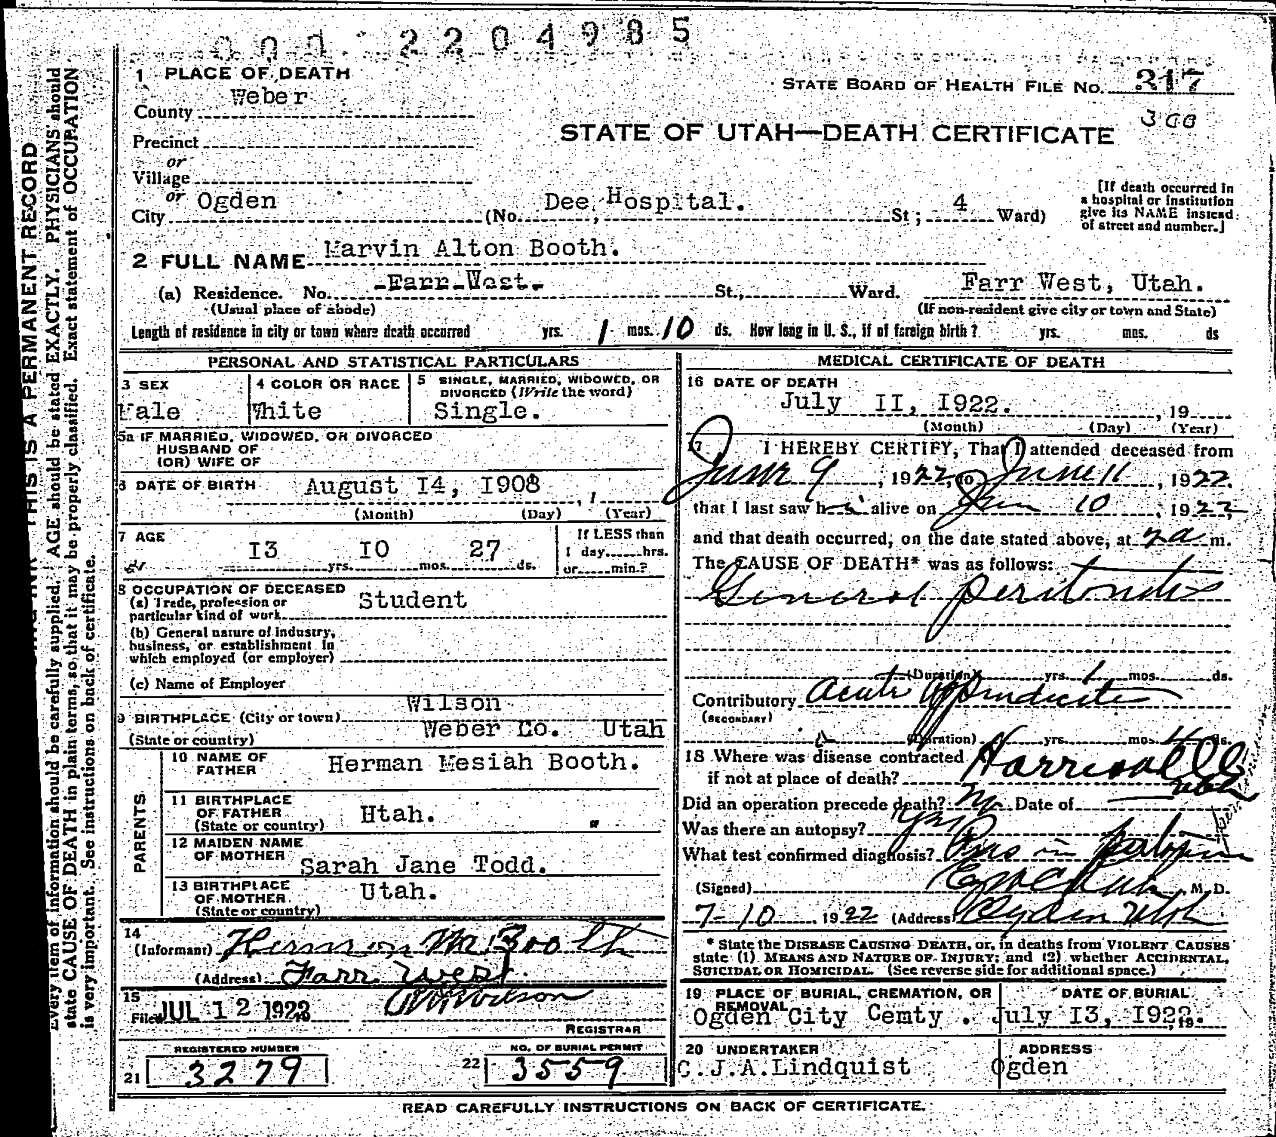 000 2204985
1 PLACE OF DEATH
STATE BOARD OF HEALTH FILE NO. 317
County Weber
300
STATE OF UTAH—DEATH CERTIFICATE
Precinct
or
Village
or
City Ogden (No. Dee Hospital. St; 4 Ward)
[If death occurred in a hospital or institution give its NAME instead of street and number.]
2 FULL NAME Marvin Alton Booth.
(a) Residence. No. Farr West. St., Ward. Farr West, Utah.
(Usual place of abode) (If non-resident give city or town and State)
Length of residence in city or town where death occurred yrs. 1 mos. 10 ds. How long in U. S., if of foreign birth? yrs. mos. ds
PERSONAL AND STATISTICAL PARTICULARS
3 SEX
Male
4 COLOR OR RACE
White
5 SINGLE, MARRIED, WIDOWED, OR DIVORCED (Write the word)
Single.
5a IF MARRIED, WIDOWED, OR DIVORCED
HUSBAND OF
(OR) WIFE OF
6 DATE OF BIRTH August I4, I908 , 1
(Month) (Day) (Year)
7 AGE
I3 yrs. I0 mos. 27 ds.
If LESS than
1 day......hrs.
or......min.?
8 OCCUPATION OF DECEASED
(a) Trade, profession or particular kind of work Student
(b) General nature of industry, business, or establishment in which employed (or employer)
(c) Name of Employer
9 BIRTHPLACE (City or town) Wilson
(State or country) Weber Co. Utah
PARENTS
10 NAME OF FATHER Herman Mesiah Booth.
11 BIRTHPLACE OF FATHER (State or country) Utah.
12 MAIDEN NAME OF MOTHER Sarah Jane Todd.
13 BIRTHPLACE OF MOTHER (State or country) Utah.
14
(Informant) Herman M Booth
(Address) Farr West.
15
Filed JUL 12 1922
REGISTRAR
REGISTERED NUMBER
21 3279
NO. OF BURIAL PERMIT
22 3559
MEDICAL CERTIFICATE OF DEATH
16 DATE OF DEATH
July II, I922. , 19
(Month) (Day) (Year)
17 I HEREBY CERTIFY, That I attended deceased from
June 9, 1922, to June 11, 1922.
that I last saw h i alive on Jun 10, 1922,
and that death occurred, on the date stated above, at 7 a m.
The CAUSE OF DEATH* was as follows:
General peritonitis
(Duration) yrs. 1 mos. ds.
Contributory Acute Appendicitis
(SECONDARY)
(Duration) yrs. mos. 4 ds.
18 Where was disease contracted if not at place of death? Harrisville Utah
Did an operation precede death? no Date of
Was there an autopsy? yes
What test confirmed diagnosis? Pus in
(Signed) M. D.
7-10, 1922 (Address) Ogden Utah
* State the DISEASE CAUSING DEATH, or, in deaths from VIOLENT CAUSES state (1) MEANS AND NATURE OF INJURY; and (2) whether ACCIDENTAL, SUICIDAL OR HOMICIDAL. (See reverse side for additional space.)
19 PLACE OF BURIAL, CREMATION, OR REMOVAL
Ogden City Cemty .
DATE OF BURIAL
July I3, I922. , 19
20 UNDERTAKER
C.J.A.Lindquist
ADDRESS
Ogden
READ CAREFULLY INSTRUCTIONS ON BACK OF CERTIFICATE.
THIS IS A PERMANENT RECORD
Every item of information should be carefully supplied. AGE should be stated EXACTLY. PHYSICIANS should
state CAUSE OF DEATH in plain terms, so that it may be properly classified. Exact statement of OCCUPATION
is very important. See instructions on back of certificate.